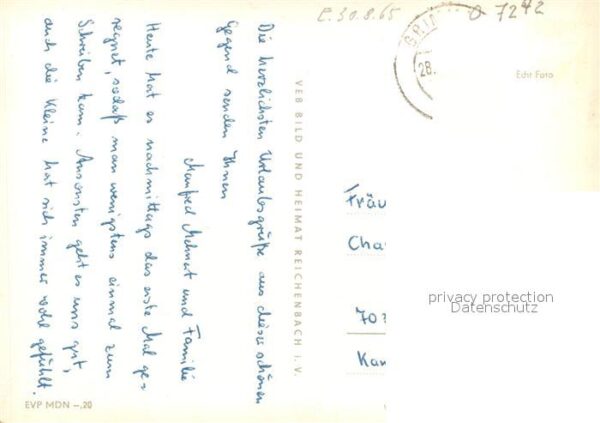 E. 30.8.65
O 7242
GRIM
28.
Echt Foto
Die herzlichsten Urlaubsgrüße aus dieser schönen
Gegend senden Ihnen
Manfred und Familie
Heute hat es nachmittags das erste Mal ge-
regnet, sodaß man wenigstens einmal zum
Schreiben kam. Ansonsten geht es uns gut,
auch die Kleine hat sich immer wohl gefühlt.
VEB BILD UND HEIMAT REICHENBACH I. V.
Fräu
Cha
70
Kam
privacy protection
Datenschutz
EVP MDN —,20